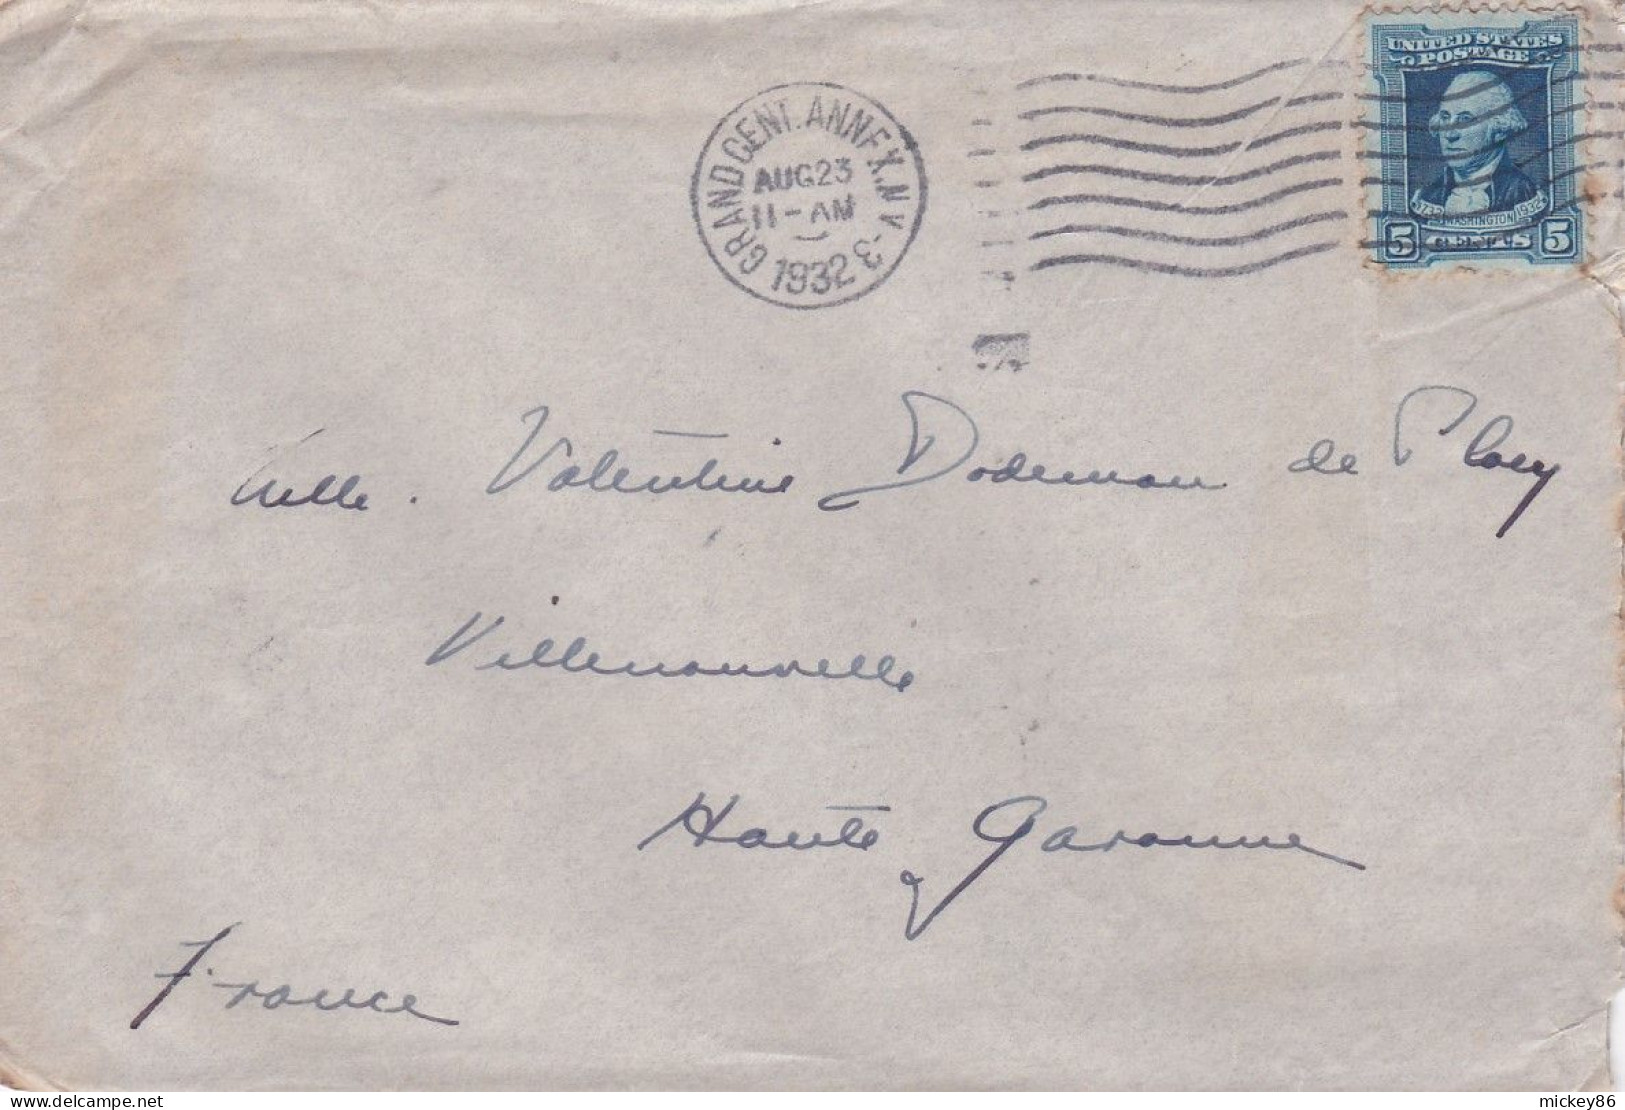 UNITED STATES
POSTAGE
GRAND CENT. ANNEX. N.Y. - 3
AUG 23
11-AM
1932
1732 WASHINGTON 1932
5 CENTS 5
Mlle. Valentine Dodeman de Placy
Villenouvelle
Haute Garonne
France
mickey86
delcampe.net